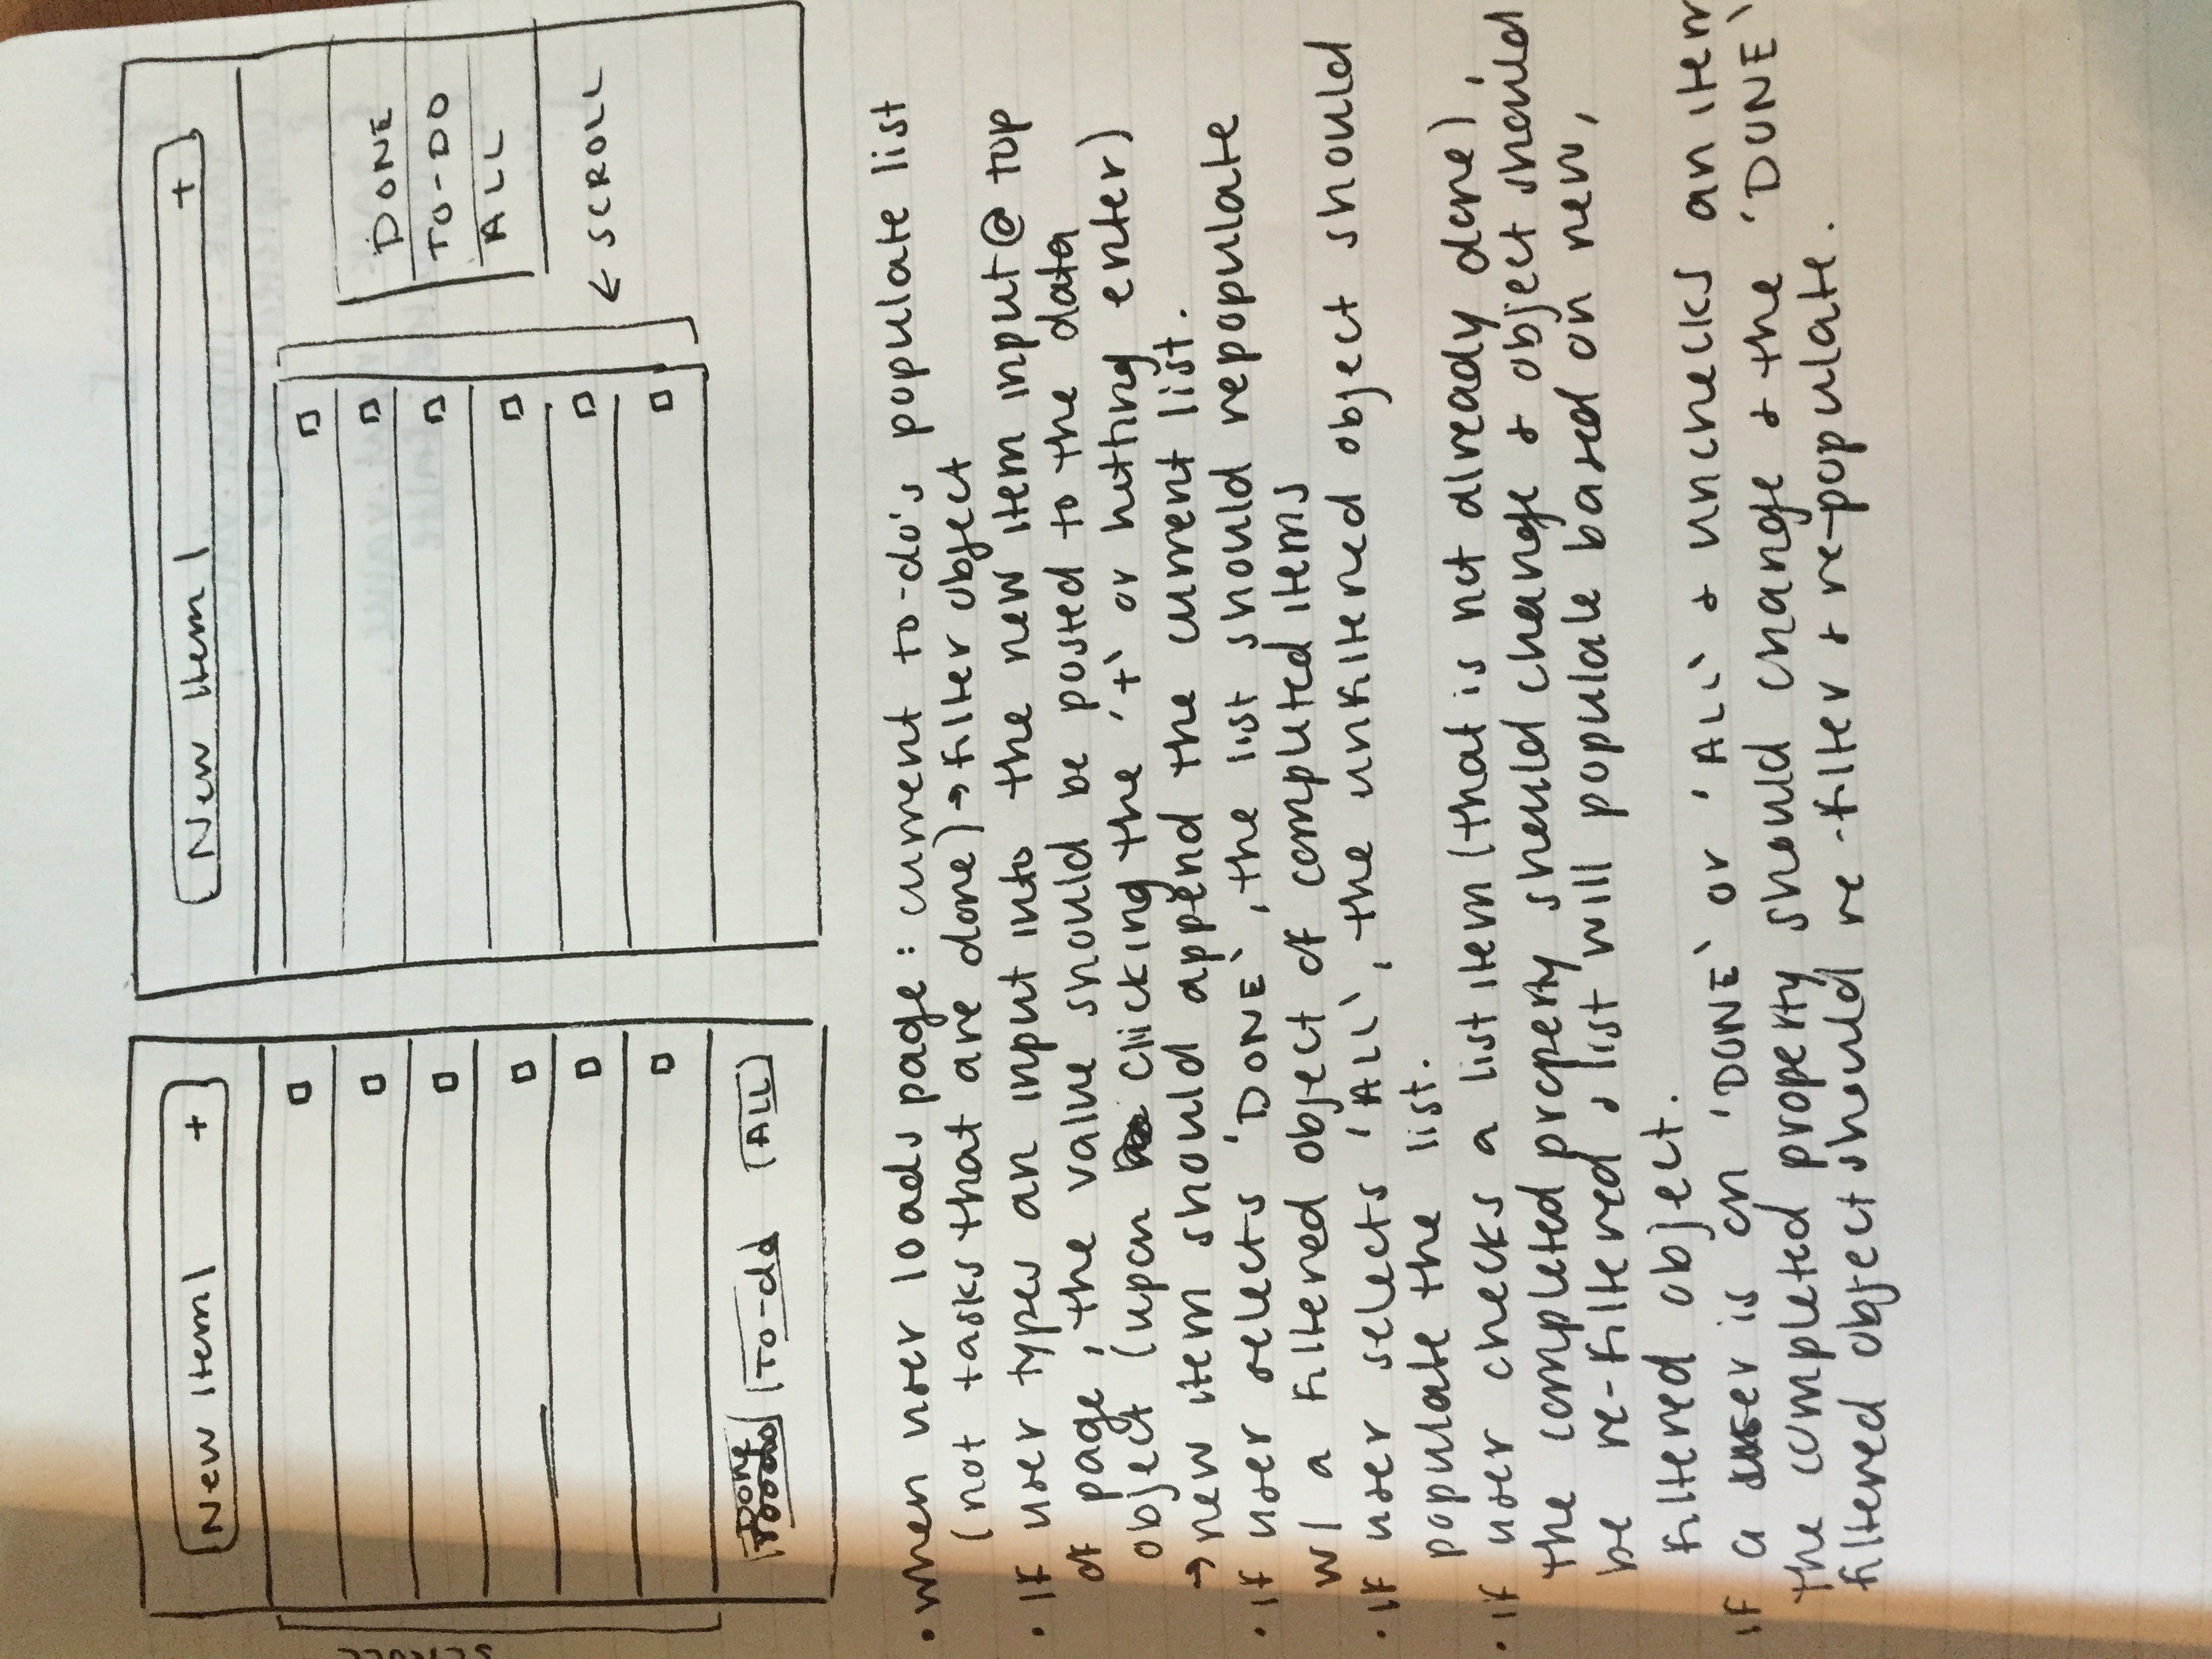 New Item +
SCROLL
Done
To-do
ALL
New Item +
DONE
TO-DO
ALL
← SCROLL
• when user loads page: current to-do's populate list
(not tasks that are done) → filter object
• If user types an input into the new item input @ top
of page, the value should be posted to the data
object (upon clicking the '+' or hitting enter)
→ new item should append the current list.
• if user selects 'DONE', the list should repopulate
w/ a filtered object of completed items
• if user selects 'ALL', the unfiltered object should
populate the list.
• if user checks a list item (that is not already done),
the completed property should change & object should
be re-filtered & list will populate based on new,
filtered object.
if a user is on 'DONE' or 'ALL' & unchecks an item
the completed property should change & the 'DONE'
filtered object should re-filter & re-populate.